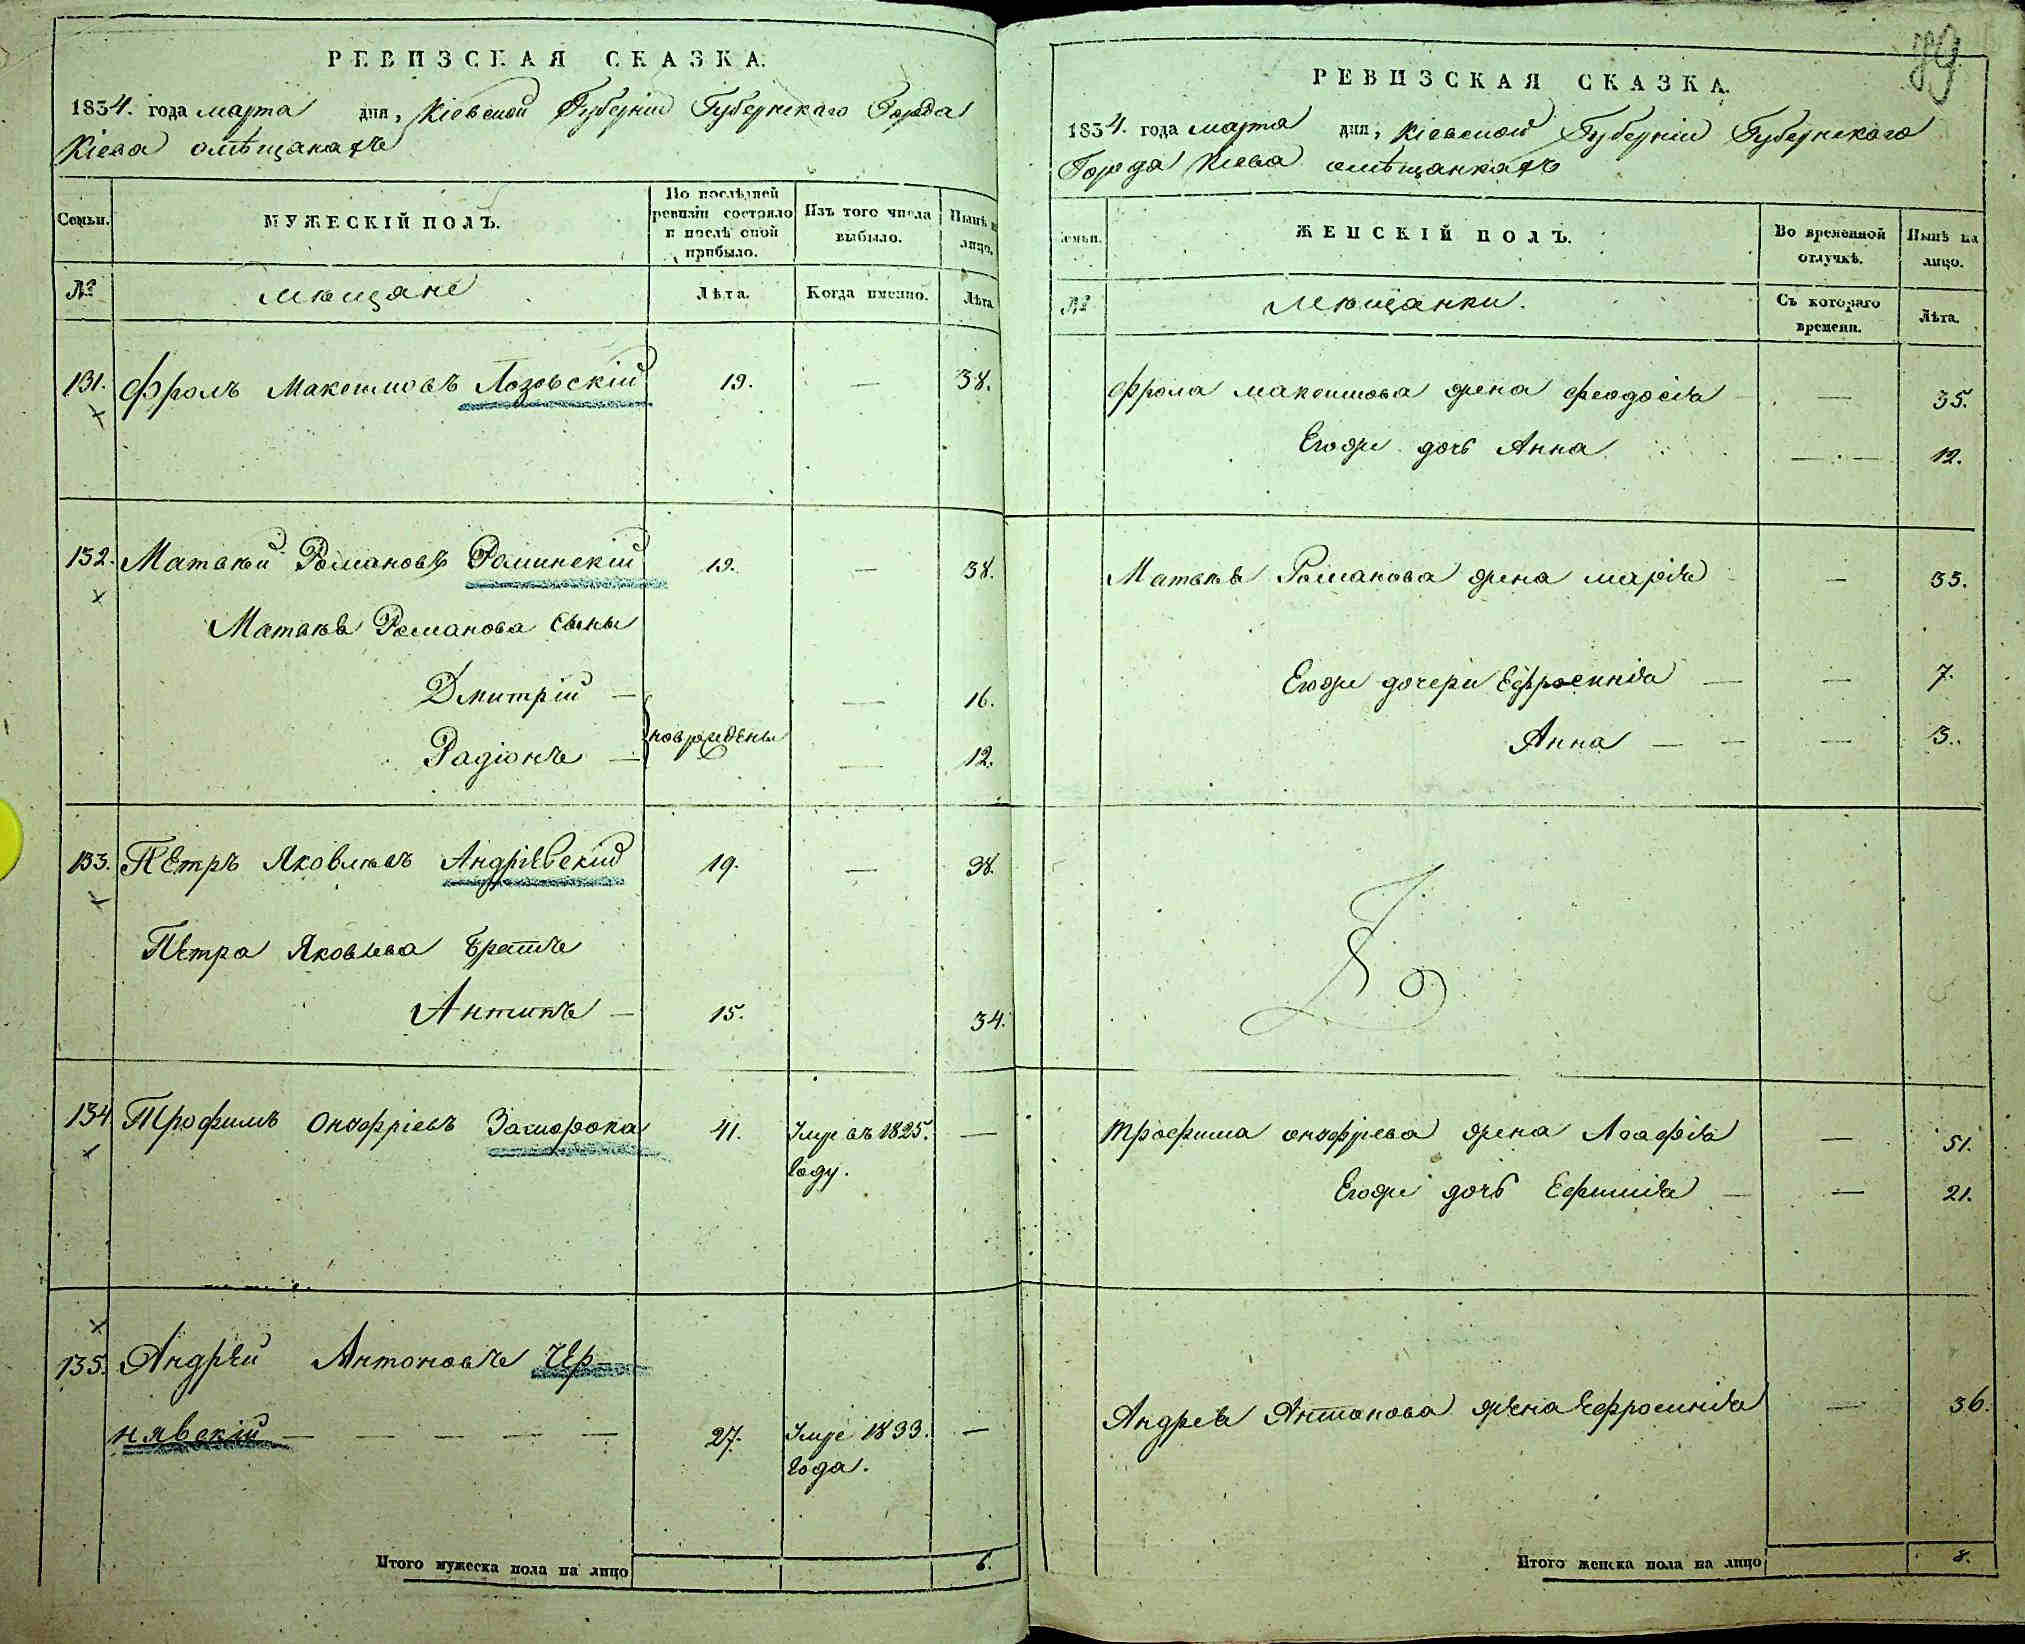 РЕВИЗСКАЯ СКАЗКА.
1834. года марта дня, Кіевской Губерніи Губернскаго Города
Кіева омѣщанахъ
Семьи. МУЖЕСКІЙ ПОЛЪ. По послѣдней ревизіи состояло и послѣ оной прибыло. Изъ того числа выбыло. Нынѣ на лицо.
№ мѣщане Лѣта. Когда именно. Лѣта
131. Фролъ Максимовъ Лозовскій 19. — 38.
132. Матвѣй Романовъ Роминскій 19. — 38.
Матвѣя Романова сыны
Дмитрій — новрождены — 16.
Радіонъ — — 12.
133. Петръ Яковлевъ Андріевскій 19. — 38.
Петра Яковлева братъ
Антипъ — 15. 34.
134 Трофимъ Онофріевъ 41. Умре въ 1825. —
году.
135. Андрей Антоновъ Чер-
нявскій — — — — — 27. Умре 1833. —
года.
Итого мужеска пола на лицо 6.
89
РЕВИЗСКАЯ СКАЗКА.
1834. года марта дня, Кіевской Губерніи Губернскаго
Города Кіева омѣщанкахъ
Семьи. ЖЕНСКІЙ ПОЛЪ. Во временной отлучкѣ. Нынѣ на лицо.
№ Мѣщанки. Съ котораго времени. Лѣта.
Фрола максимова жена феодосія — — 35.
Егоже дочь Анна — 12.
Матвѣя Романова жена марія — — 33.
Егоже дочери Ефросинія — — 7.
Анна — — — 3.
Трофима онофріева жена Агафія — 51.
Егоже дочь Ефимія — — 21.
Андрея Антонова жена Ефросинія — 36.
Итого женска пола на лицо 8.